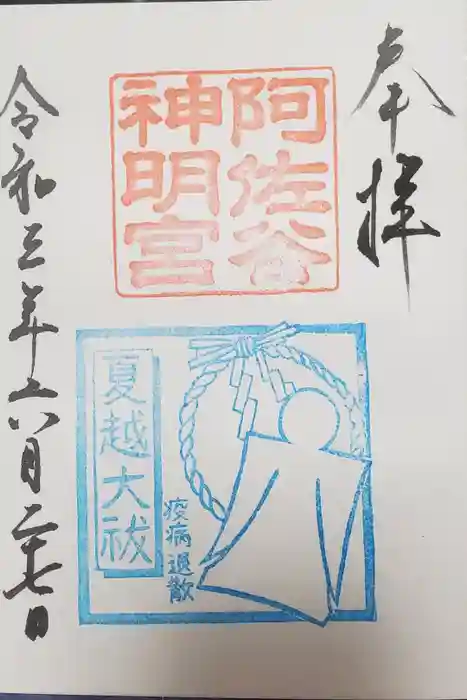 奉拝
阿佐谷
神明宮
夏越大祓
疫病退散
令和三年六月二十七日